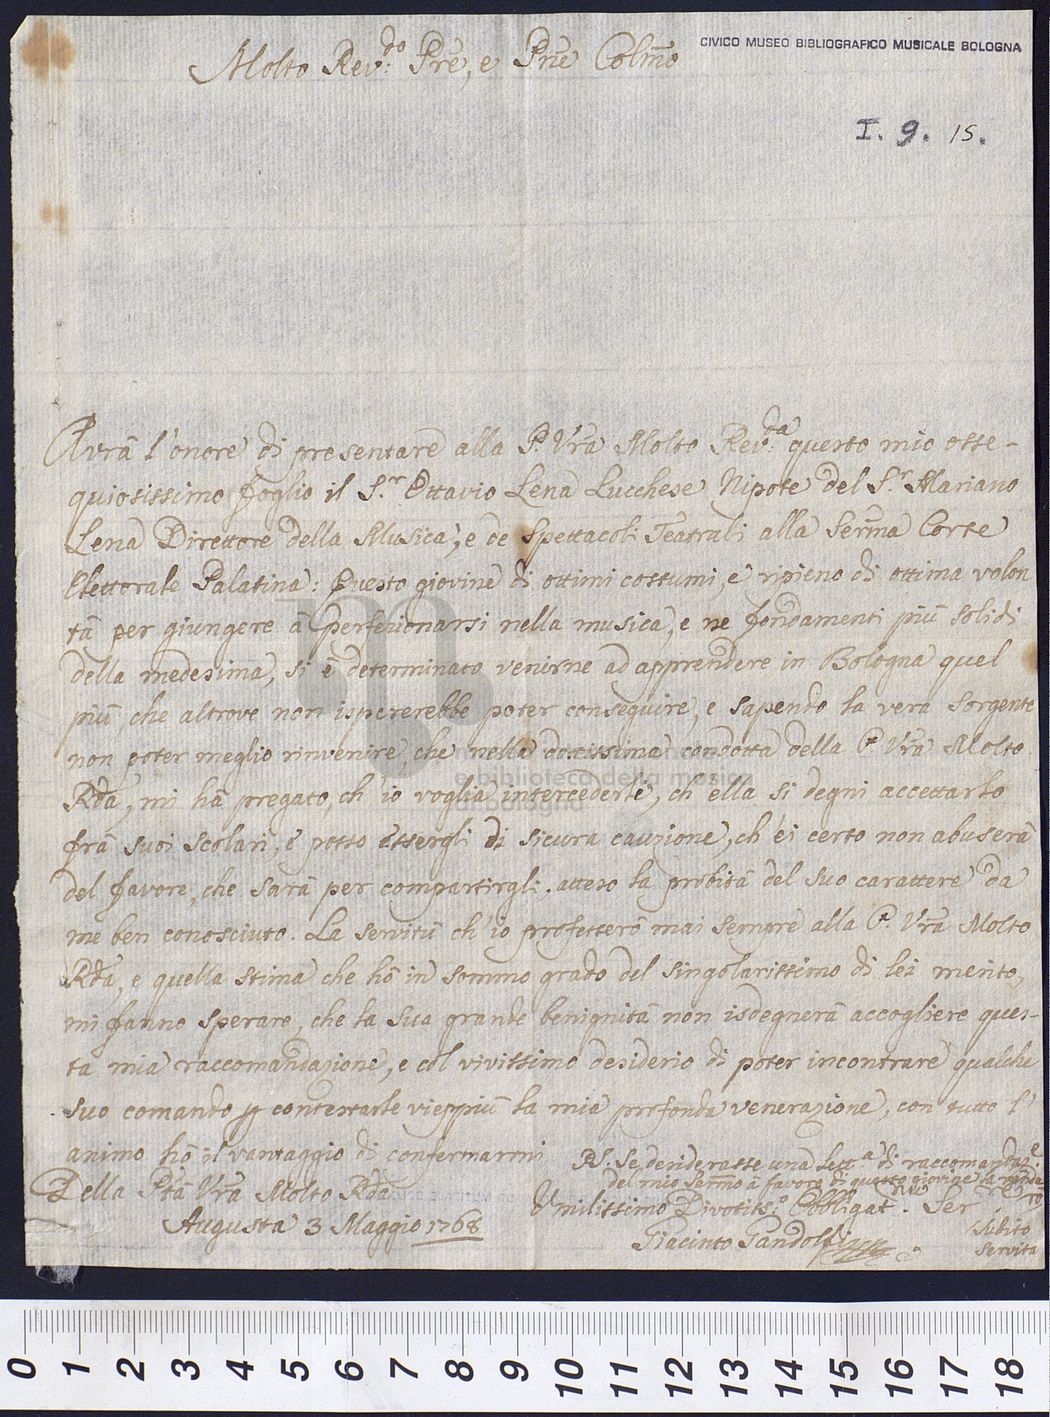 CIVICO MUSEO BIBLIOGRAFICO MUSICALE BOLOGNA
Molto Rev.do Pre, e Pne Colmo
I. 9. 15.
Avrà l'onore di presentare alla P. Vra Molto Rev.da questo mio osse-
quiosissimo foglio il S.r Ottavio Lena Lucchese Nipote del S.r Mariano
Lena Direttore della Musica, e de Spettacoli Teatrali alla Serma Corte
Elettorale Palatina: Questo giovine di ottimi costumi, e ripieno di ottima volon
tà per giungere à perfezionarsi nella musica, e ne fondamenti più solidi
della medesima, si è determinato venirne ad apprendere in Bologna quel
più che altrove non ispererebbe poter conseguire, e sapendo la vera sorgente
non poter meglio rinvenire, che nella dottissima condotta della P. Vra Molto
Rda, mi hà pregato, ch'io voglia intercederle, ch'ella si degni accettarlo
frà suoi scolari, e posso essergli di sicura cauzione, ch'ei certo non abuserà
del favore, che sarà per compartirgli, atteso la probità del suo carattere da
me ben conosciuto. La servitù ch'io professerò mai sempre alla P. Vra Molto
Rda, e quella stima che hò in sommo grado del singolarissimo di lei merito,
mi fanno sperare, che la sua grande benignità non isdegnerà accogliere ques-
ta mia raccomandazione, e col vivissimo desiderio di poter incontrare qualche
suo comando p contestarle vieppiù la mia profonda venerazione, con tutto l'
animo hò il vantaggio di confermarmi
Della Ptà Vra Molto Rda
Augusta 3 Maggio 1768
Umilissimo Divotis.o Obbligat. Ser.re
Giacinto Gandolfi
PS. Se desiderasse una lett.a di raccomandaz.e
del mio Sermo à favore di questo giovine la
subito
servita
museo internazionale
e biblioteca della musica
di bologna
0 1 2 3 4 5 6 7 8 9 10 11 12 13 14 15 16 17 18